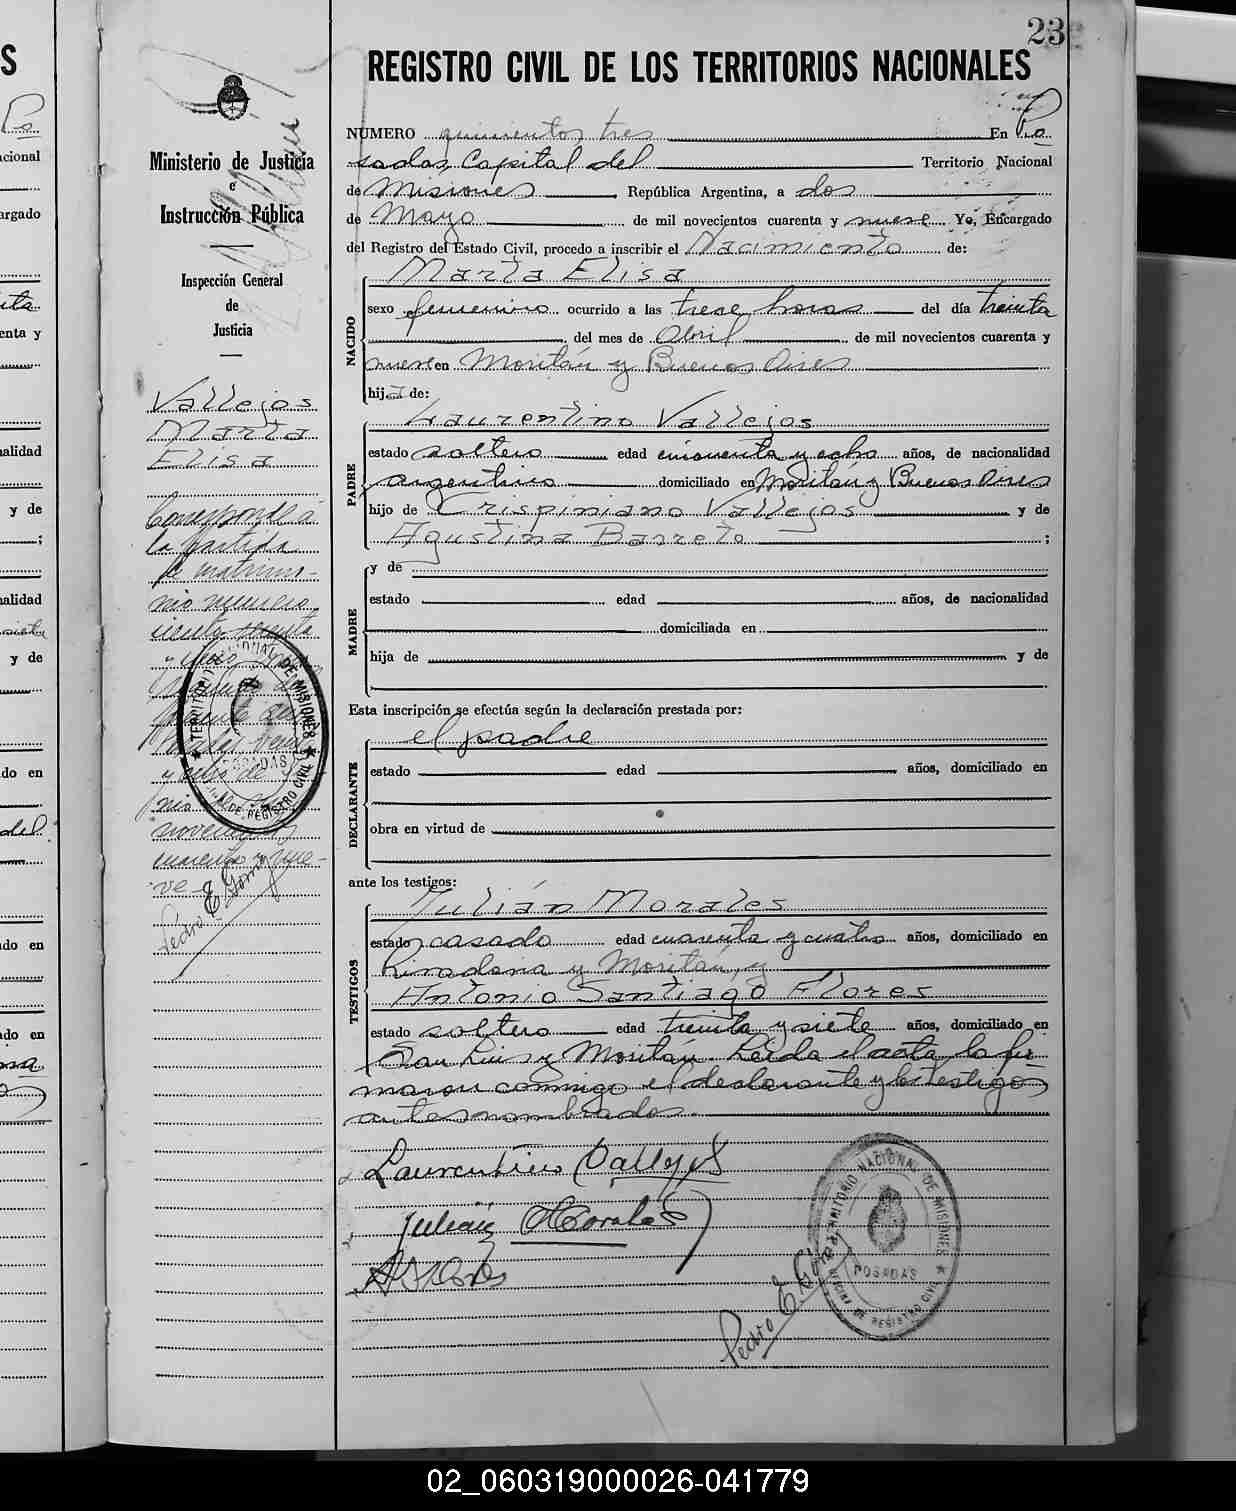 23
REGISTRO CIVIL DE LOS TERRITORIOS NACIONALES
NUMERO quinientos tres En Po
sadas, Capital del Territorio Nacional
de Misiones República Argentina, a dos
de Mayo de mil novecientos cuarenta y nueve Yo, Encargado
del Registro del Estado Civil, procedo a inscribir el Nacimiento de:
Marta Elisa
sexo femenino ocurrido a las trece horas del día treinta
del mes de Abril de mil novecientos cuarenta y
nueve en Moritán y Buenos Aires
hija de:
NACIDO
Laurentino Vallejos
estado soltero edad cincuenta y ocho años, de nacionalidad
argentino domiciliado en Moritán y Buenos Aires
hijo de Crispiniano Vallejos y de
Agustina Barreto ;
PADRE
y de
estado edad años, de nacionalidad
domiciliada en
hija de y de
MADRE
Esta inscripción se efectúa según la declaración prestada por:
el padre
estado edad años, domiciliado en
obra en virtud de
DECLARANTE
ante los testigos:
Julián Morales
estado casado edad cuarenta y cuatro años, domiciliado en
Rivadavia y Moritán, y
Antonio Santiago Flores
estado soltero edad treinta y siete años, domiciliado en
San Luis y Moritán. Leída el acta, la fir
maron conmigo el declarante y los testigos
antes nombrados.
TESTIGOS
Laurentino Vallejos
Julián Morales
Pedro E. Gó
TERRITORIO NACIONAL DE MISIONES
POSADAS
OFICINA DE REGISTRO CIVIL
Ministerio de Justicia
e
Instrucción Pública
Inspección General
de
Justicia
Vallejos
Marta
Elisa
Corresponde a
la partida
de matrimo-
nio número
ciento sesenta
y
novecientos
cuarenta y nue-
ve
Pedro E. Gómez
TERRITORIO NACIONAL DE MISIONES
POSADAS
OFICINA DE REGISTRO CIVIL
S
Po
cional
argado
enta y
alidad
y de
;
alidad
y de
do en
del
do en
do en
02_060319000026-041779